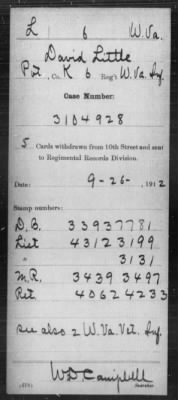 L 6 W.Va.
David Little
Pvt., Co. K 6 Reg't W.Va. Inf.
Case Number:
3104928
5 Cards withdrawn from 10th Street and sent
to Regimental Records Division.
Date: 9-26-, 1912
Stamp numbers:
D.B. 33937781
List 43123199
" 3131
M.R. 34393497
Ret. 40624233
see also 2 W.Va. Vet. Inf.
WD Campbell